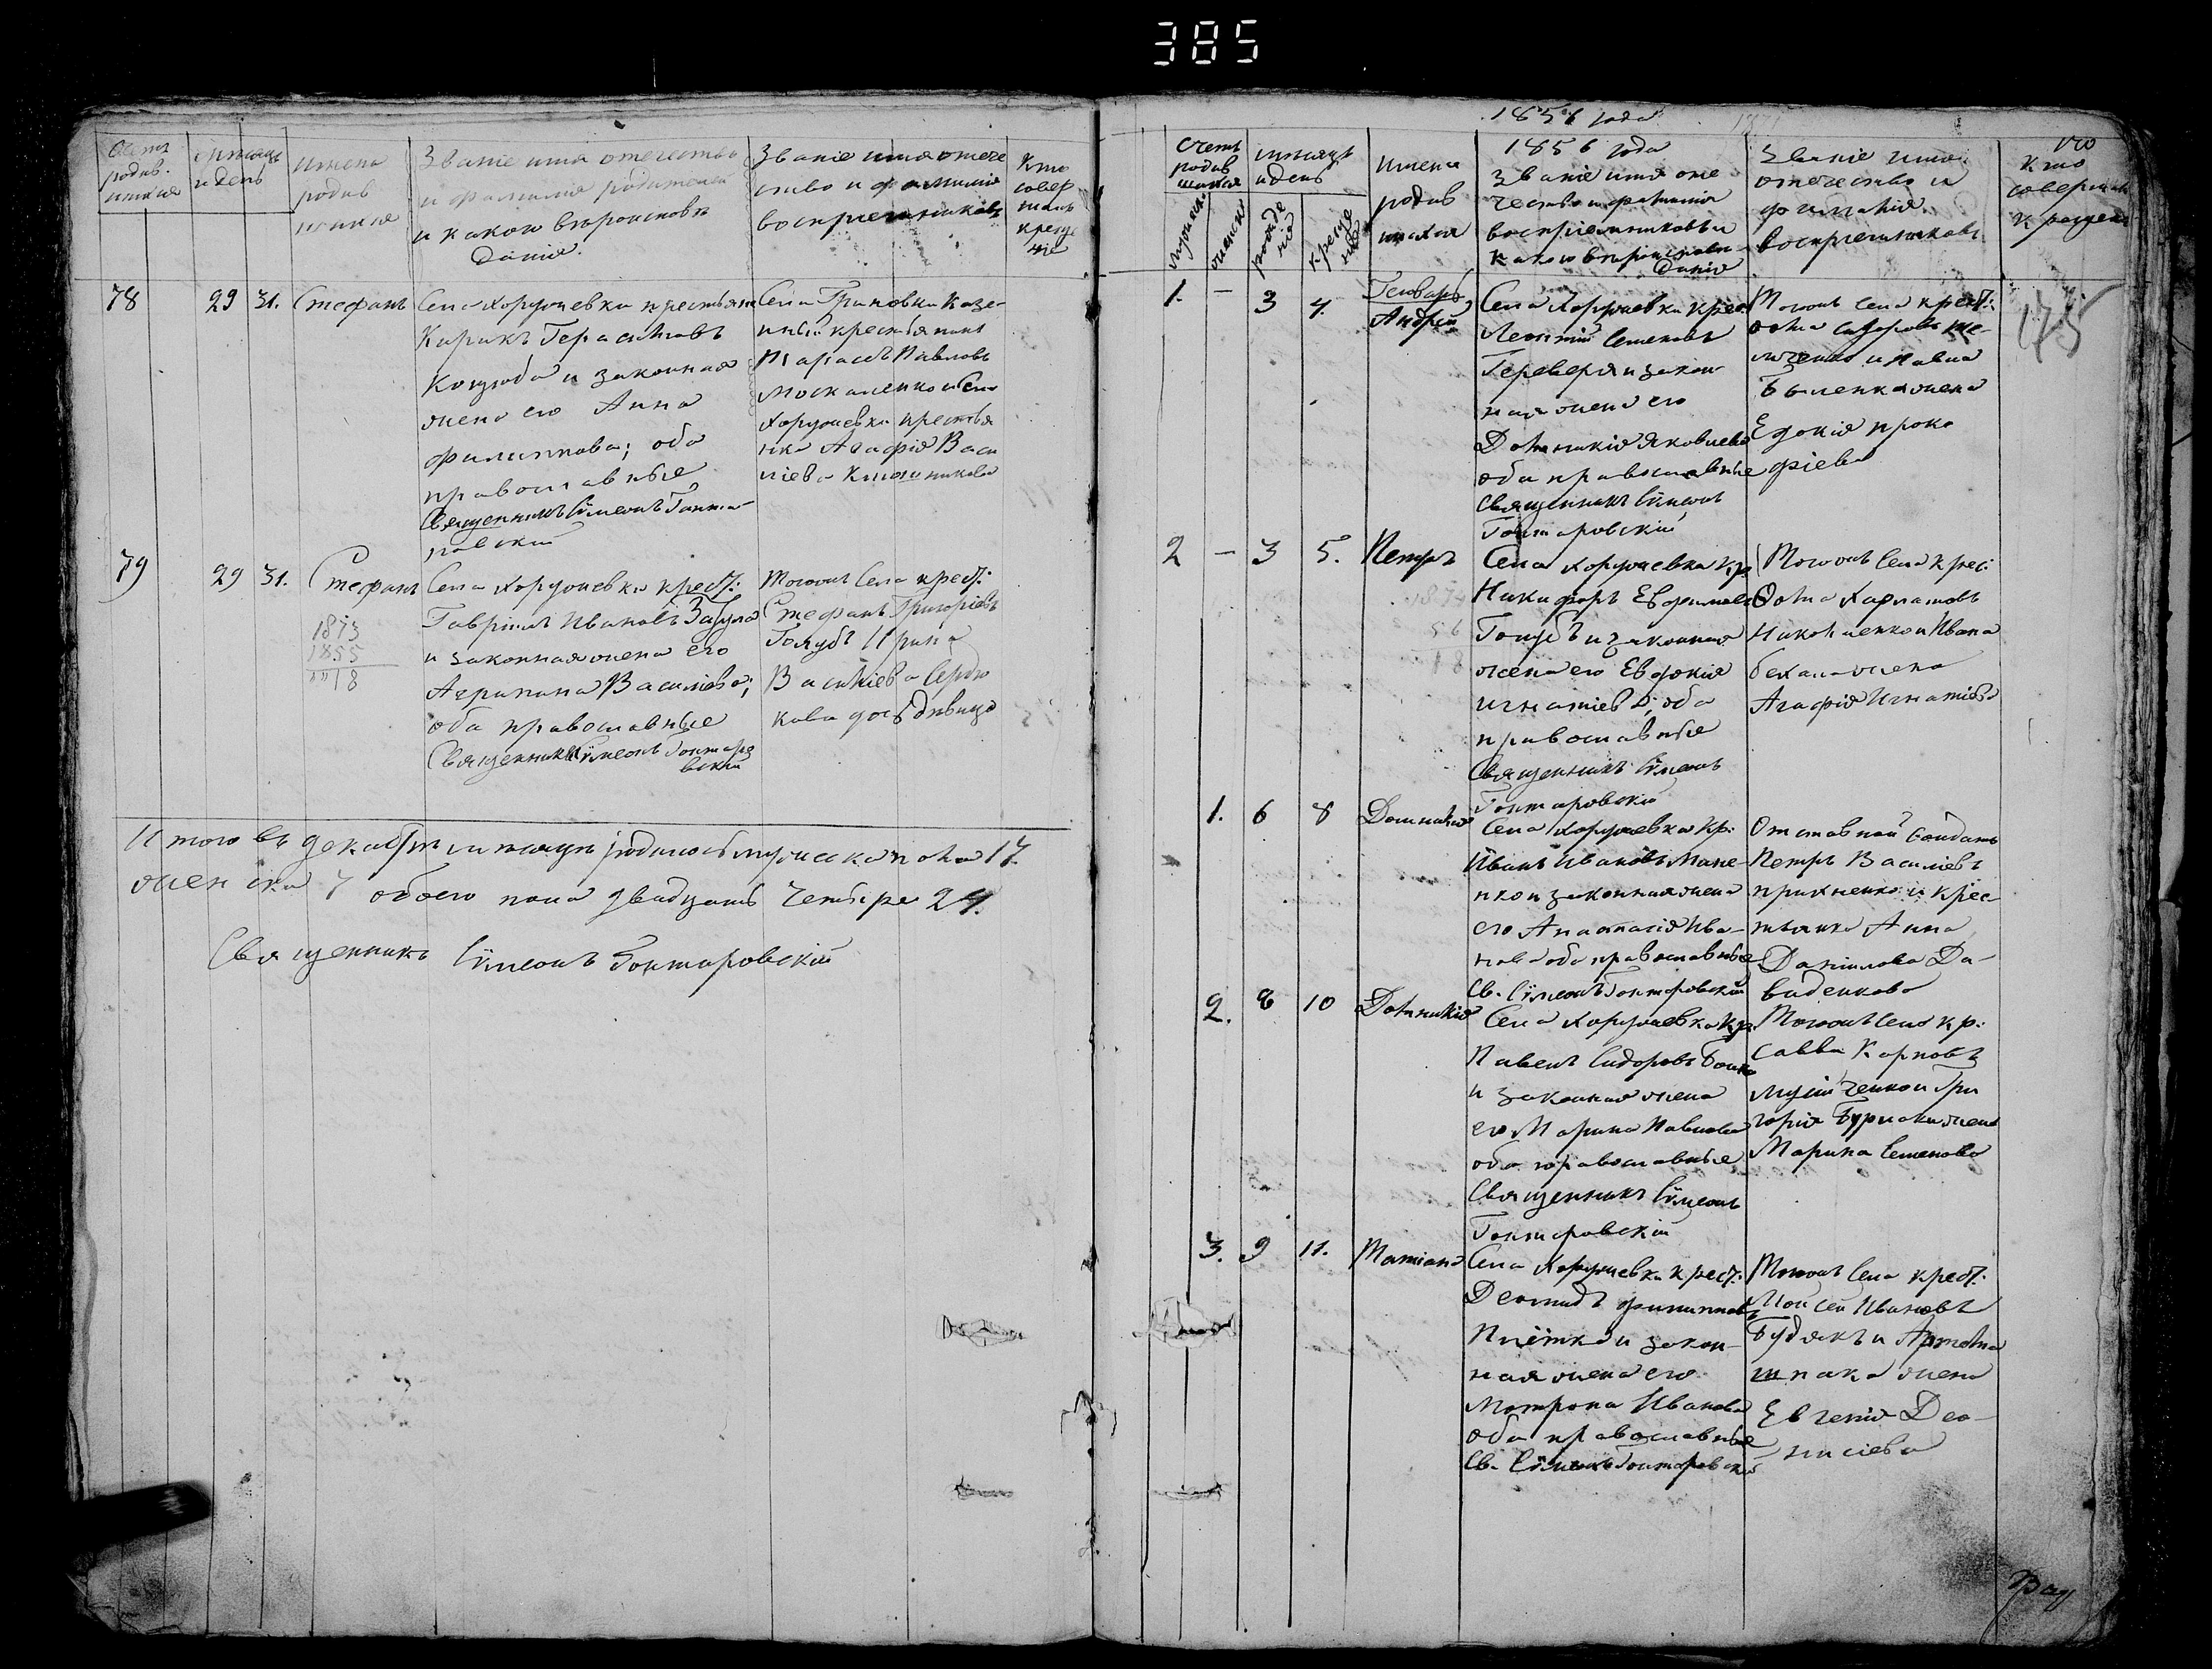 385
Счетъ родив. шихся
мѣсяцъ и день
имена родив шихся
Званіе имя отечество
и фамилія родителей
и какого вѣроисповѣ
данія.
Званіе имя отече
ство и фамилія
воспріемниковъ
Кто
совер
шалъ
креще
ніе
78
29 31.
Стефанъ
Села Хоружевки крестьян
Кирикъ Герасимовъ
Коцюба и законная
жена его Анна
Филиппова; оба
православные
Священникъ Сѵмеонъ Гонта
ровскій
Села Гриновки казе-
нный крестьянинъ
Тарасъ Павловъ
Москаленко и Села
Хоружевки крестья
нка Агафія Васи
ліева
79
29 31.
Стефанъ
1873
1855
18
Села Хоружевки крест:
Гавріилъ Ивановъ
и законная жена его
Агрипина Василіева;
оба православные
Священникъ Сѵмеонъ Гонтаро
вскій
Тогожъ Села крест:
Стефанъ Григоріевъ
Голубъ Ирина
Василіева Сердю
кова дочь дѣвица
Итого въ декабрѣ мѣсяцѣ родилось мужеска пола 17.
женска 7 обоего пола двадцать четыре 24.
Священникъ Сѵмеонъ Гонтаровскій
1856 года
Счетъ
родив
шихся
мѣсяцъ
и день
имена
родив
шихся
1856 года
Званіе имя оте
чество и фамилія
воспріемниковъ и
какого вѣроисповѣ
данія
Званіе имя.
отечество и
фамилія
воспріемниковъ
Кто
совершалъ
крещен
мужеск
женска
рожде
нія
креще
ніе
1. – 3 4.
Генварь
Андрей
Села Хоружевки крес.
Леонтій Семеновъ
Гереверя и закон
ная жена его
Домникія Яковлева
оба православные
Священникъ Сѵмеонъ
Гонтаровскій
Тогожъ Села крест:
Фома Сидоровъ
и Павла
жена
Евдокія Проко
фіева
175
2 – 3 5.
Петръ
Села Хоружевки Кр.
Никифоръ Ефимовъ
Голубъ и законная
жена его Евдокія
Игнатіева; оба
православные
Священникъ Сѵмеонъ
Гонтаровскій
Тогожъ Села крес:
Фома Харламовъ
Николаенко и Ивана
жена
Агафія Игнатіева
1. 6 8
Домникія
Села Хоружевки Кр:
Иванъ Ивановъ Мане-
нко и законная жена
его Анастасія Ива-
нова оба православные
Св. Сѵмеонъ Гонтаровскій
Отставной Солдатъ
Петръ Василіевъ
и крес-
тьянка Анна
Данилова Да-
виденкова
2. 8 10
Домникія
Села Хоружевки Кр:
Павелъ Сидоровъ Бойко
и законная жена
его Марина Павлова
оба православные
Священникъ Сѵмеонъ
Гонтаровскій
Тогожъ Села кр:
Савва Карповъ
и Гри
горія Бурлаки жена
Марина Семенова
3. 9 11.
Татіана
Села Хоружевки крест:
Деомидъ Филиппов
Плётка и закон-
ная жена его
Мотрона Иванова
оба православные
Св. Сѵмеонъ Гонтаровскій
Тогожъ Села крест:
Мойсей Ивановъ
Будякъ и Артема
шпака жена
Евгенія Део-
нисіева